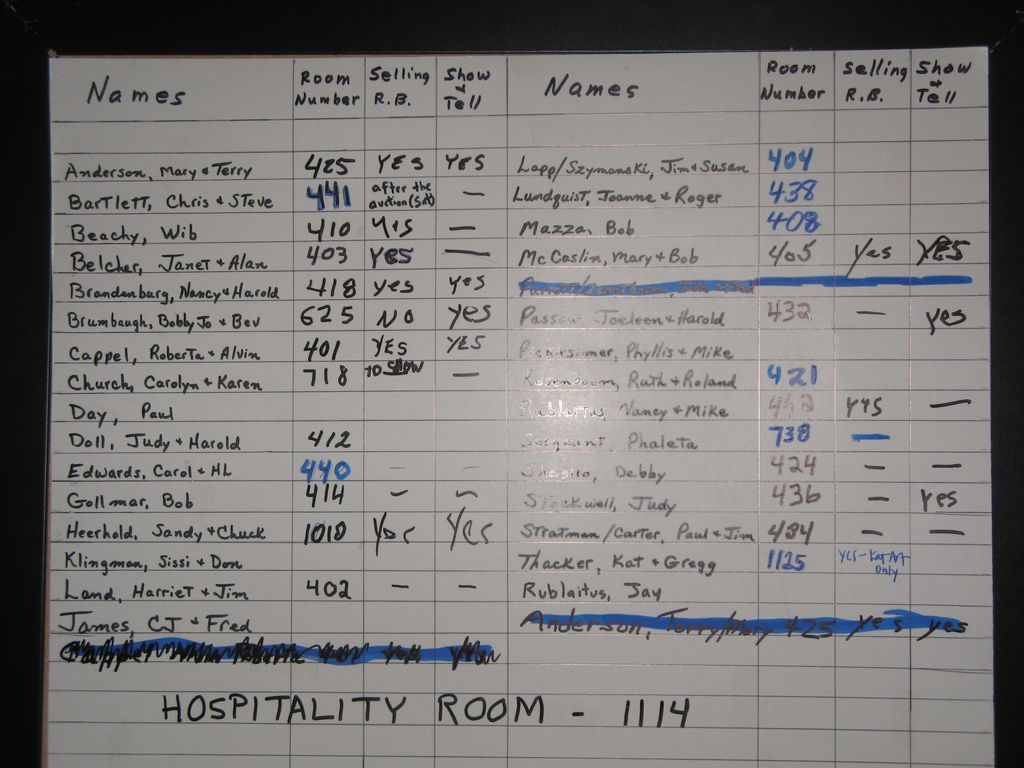 Names Room Number Selling R.B. Show + Tell
Anderson, Mary + Terry 425 YES YES
BarTleTT, Chris + STeve 441 after the auction (Sat) —
Beachy, Wib 410 Yes —
Belcher, JaneT + Alan 403 Yes —
Brandenburg, Nancy + Harold 418 yes yes
Brumbaugh, Bobby Jo + Bev 625 NO yes
Cappel, RoberTa + Alvin 401 YES YES
Church, Carolyn + Karen 718 TO SHOW —
Day, Paul
Doll, Judy + Harold 412
Edwards, Carol + HL 440 — —
Gollmar, Bob 414 — —
Heerhold, Sandy + Chuck 1018 Yes Yes
Klingman, Sissi + Don
Land, HarrieT + Jim 402 — —
James, CJ + Fred
Names Room Number Selling R.B. Show + Tell
Lapp/Szymanski, Jim + Susan 404
LundquisT, Joanne + Roger 438
Mazza, Bob 408
McCaslin, Mary + Bob 405 Yes YES
Passow Joeleen + Harold 432 — yes
Phyllis + Mike
Ruth + Roland 421
Nancy + Mike YES —
Sargeant, Phaleta 738 —
Shapiro, Debby 424 — —
STockwell, Judy 436 — yes
STratman/Carter, Paul + Jim 434 — —
Thacker, Kat + Gregg 1125 yes - Kat Art only
Rublaitus, Jay
Anderson, Terry/Mary 425 yes yes
HOSPITALITY ROOM - 1114